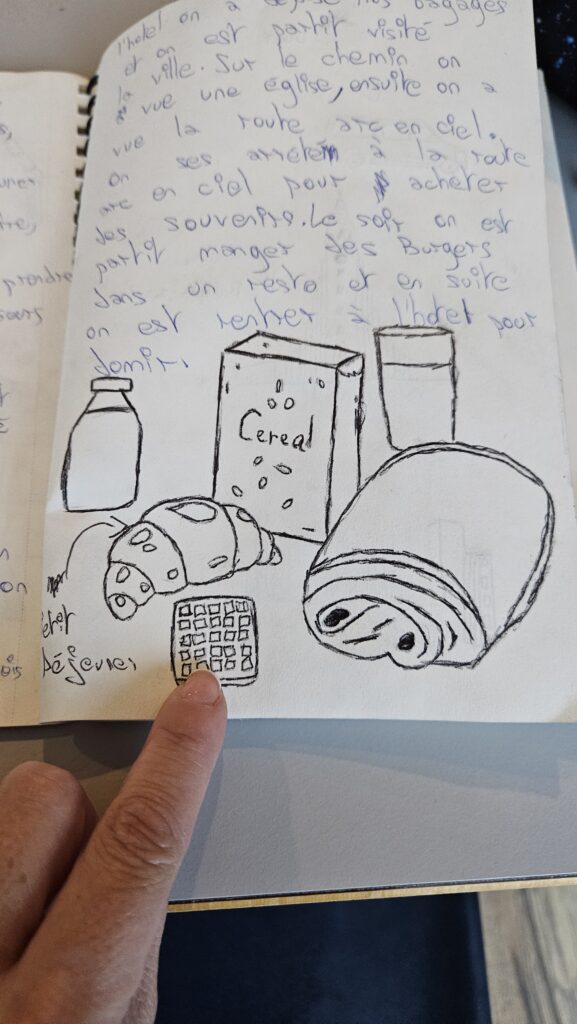 l'hotel on a déposé nos bagages
et on est partit visité
la ville. Sur le chemin on
a vue une église, ensuite on a
vue la route arc en ciel.
on ses arreten à la route
arc en ciel pour acheter
des souvenirs. Le soir on est
partit manger des Burgers
dans un resto et en suite
on est rentrer à l'hotel pour
domir.
prendre
on
Cereal
Petit
Déjeuner